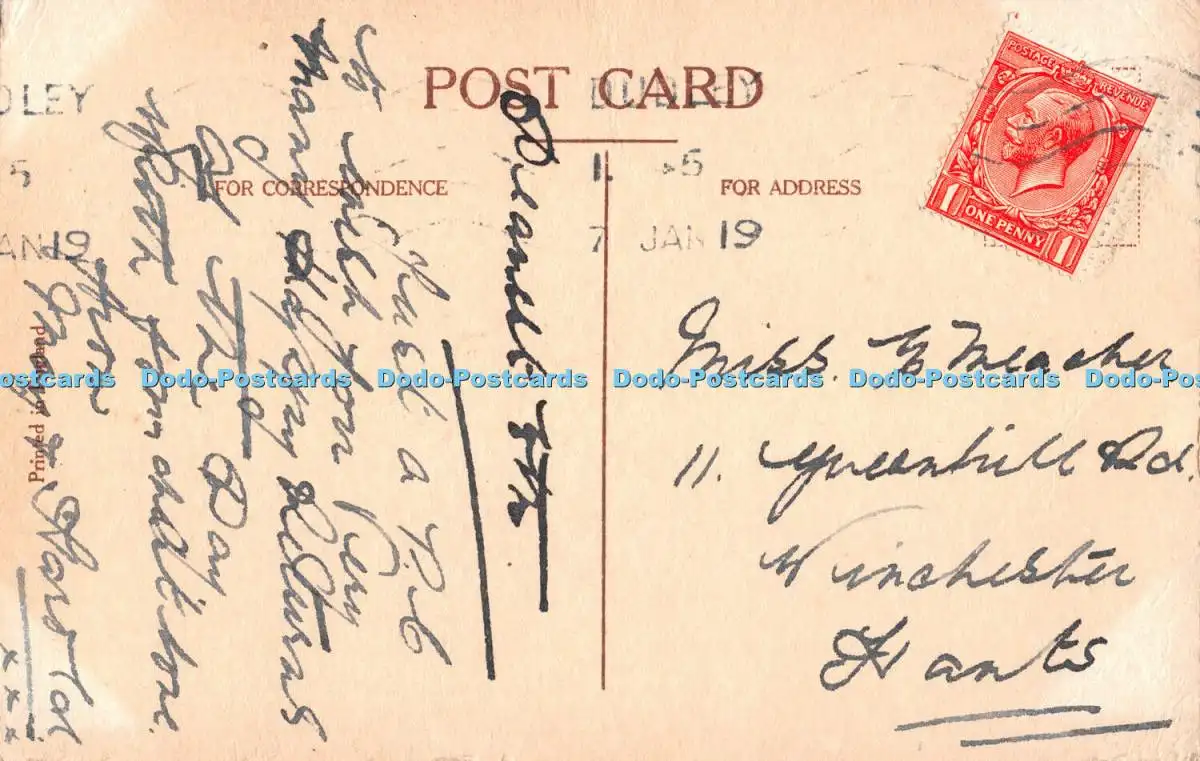 POST CARD
FOR CORRESPONDENCE
FOR ADDRESS
Printed in
DLEY
5
AN 19
DUDLEY
5
7 JAN 19
POSTAGE REVENUE
1 ONE PENNY 1
Dear
Just a P.C
to wish you Very
Many Happy Returns
Of The Day
With fond love
from
Harold
x x x
Miss. G Meacher
11. Greenhill Rd.
Winchester
Hants
Dodo-Postcards Dodo-Postcards Dodo-Postcards Dodo-Postcards Dodo-Postcards